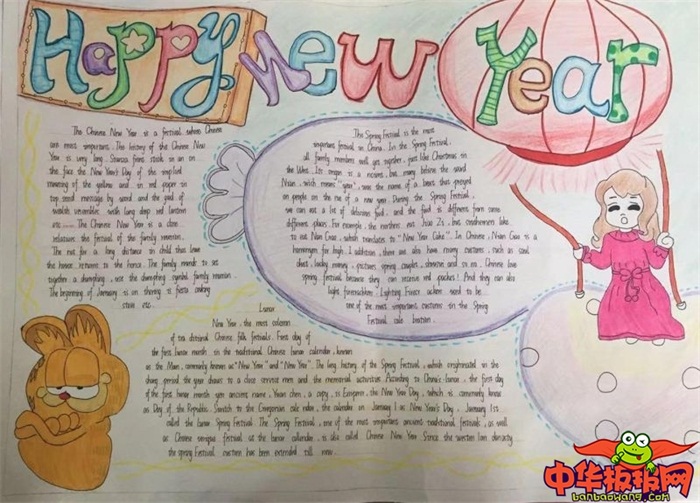 Happy New Year
The Chinese New Year is a festival where Chinese
are most important. The history of the Chinese New
Year is very long. Strauss firms stick in on on
the face the New Year's Day of the
meaning of the yellow and in red paper in
top send message by word and the god of
wealth wealth with long deep red lantern
etc...... The Chinese New Year is a
the festival of the family reunion.
The not for a long distance to child thus leave
the honor returns to the home. The family needs to eat
together a dumpling, use the dumpling symbol family reunion.
The beginning of January is on
etc.
The Spring Festival is the most
important festival in China. In the Spring Festival,
all family members will get together, just like Christmas in
the West. Its origin is a mystery, but many believe the word
Nian, which means "year", was the name of a beast that preyed
on people on the eve of a new year. During the Spring Festival,
we can eat a lot of delicious food, and the food is different from some
different place. For example, the northers eat Jiao Zi, but southerners like
to eat Nian Gao, which translates to "New Year Cake". In Chinese, Nian Gao is a
homonym for high. I addition, there are also have many customs, such as said
couples, observe and so on. Chinese love
spring festival because they can receive red packets! And they can also
light firecracker! Lighting Firecr acker used to be
one of the most important customs in the Spring
Festival cele bration.
Lunar
New Year, the most solemn
of tra ditional Chinese folk festivals. First day of
the first lunar month, in the traditional Chinese lunar calendar, known
as the Man, commonly known as "New Year" and "New Year". The long history of the Spring Festival, which originated in the
shang period the year draws to a close service men and the memorial activities. According to China's lunar, the first day
of the first lunar month yen ancient name, Yuan chen, a copy, is European, the New Year Day, which is commonly known
as Day of the Republic Switch to the Gregorian cale ndar, the calendar on January 1 as New Year's Day, January 1st
called the lunar Spring Festival. The Spring Festival, one of the most important ancient traditional festivals, as well
as Chinese unique festival at the lunar calendar, is also called Chinese New Year. Since the western han dynasty
the spring Festival custom has been extended till now.
中华板报网
banbaowang.com